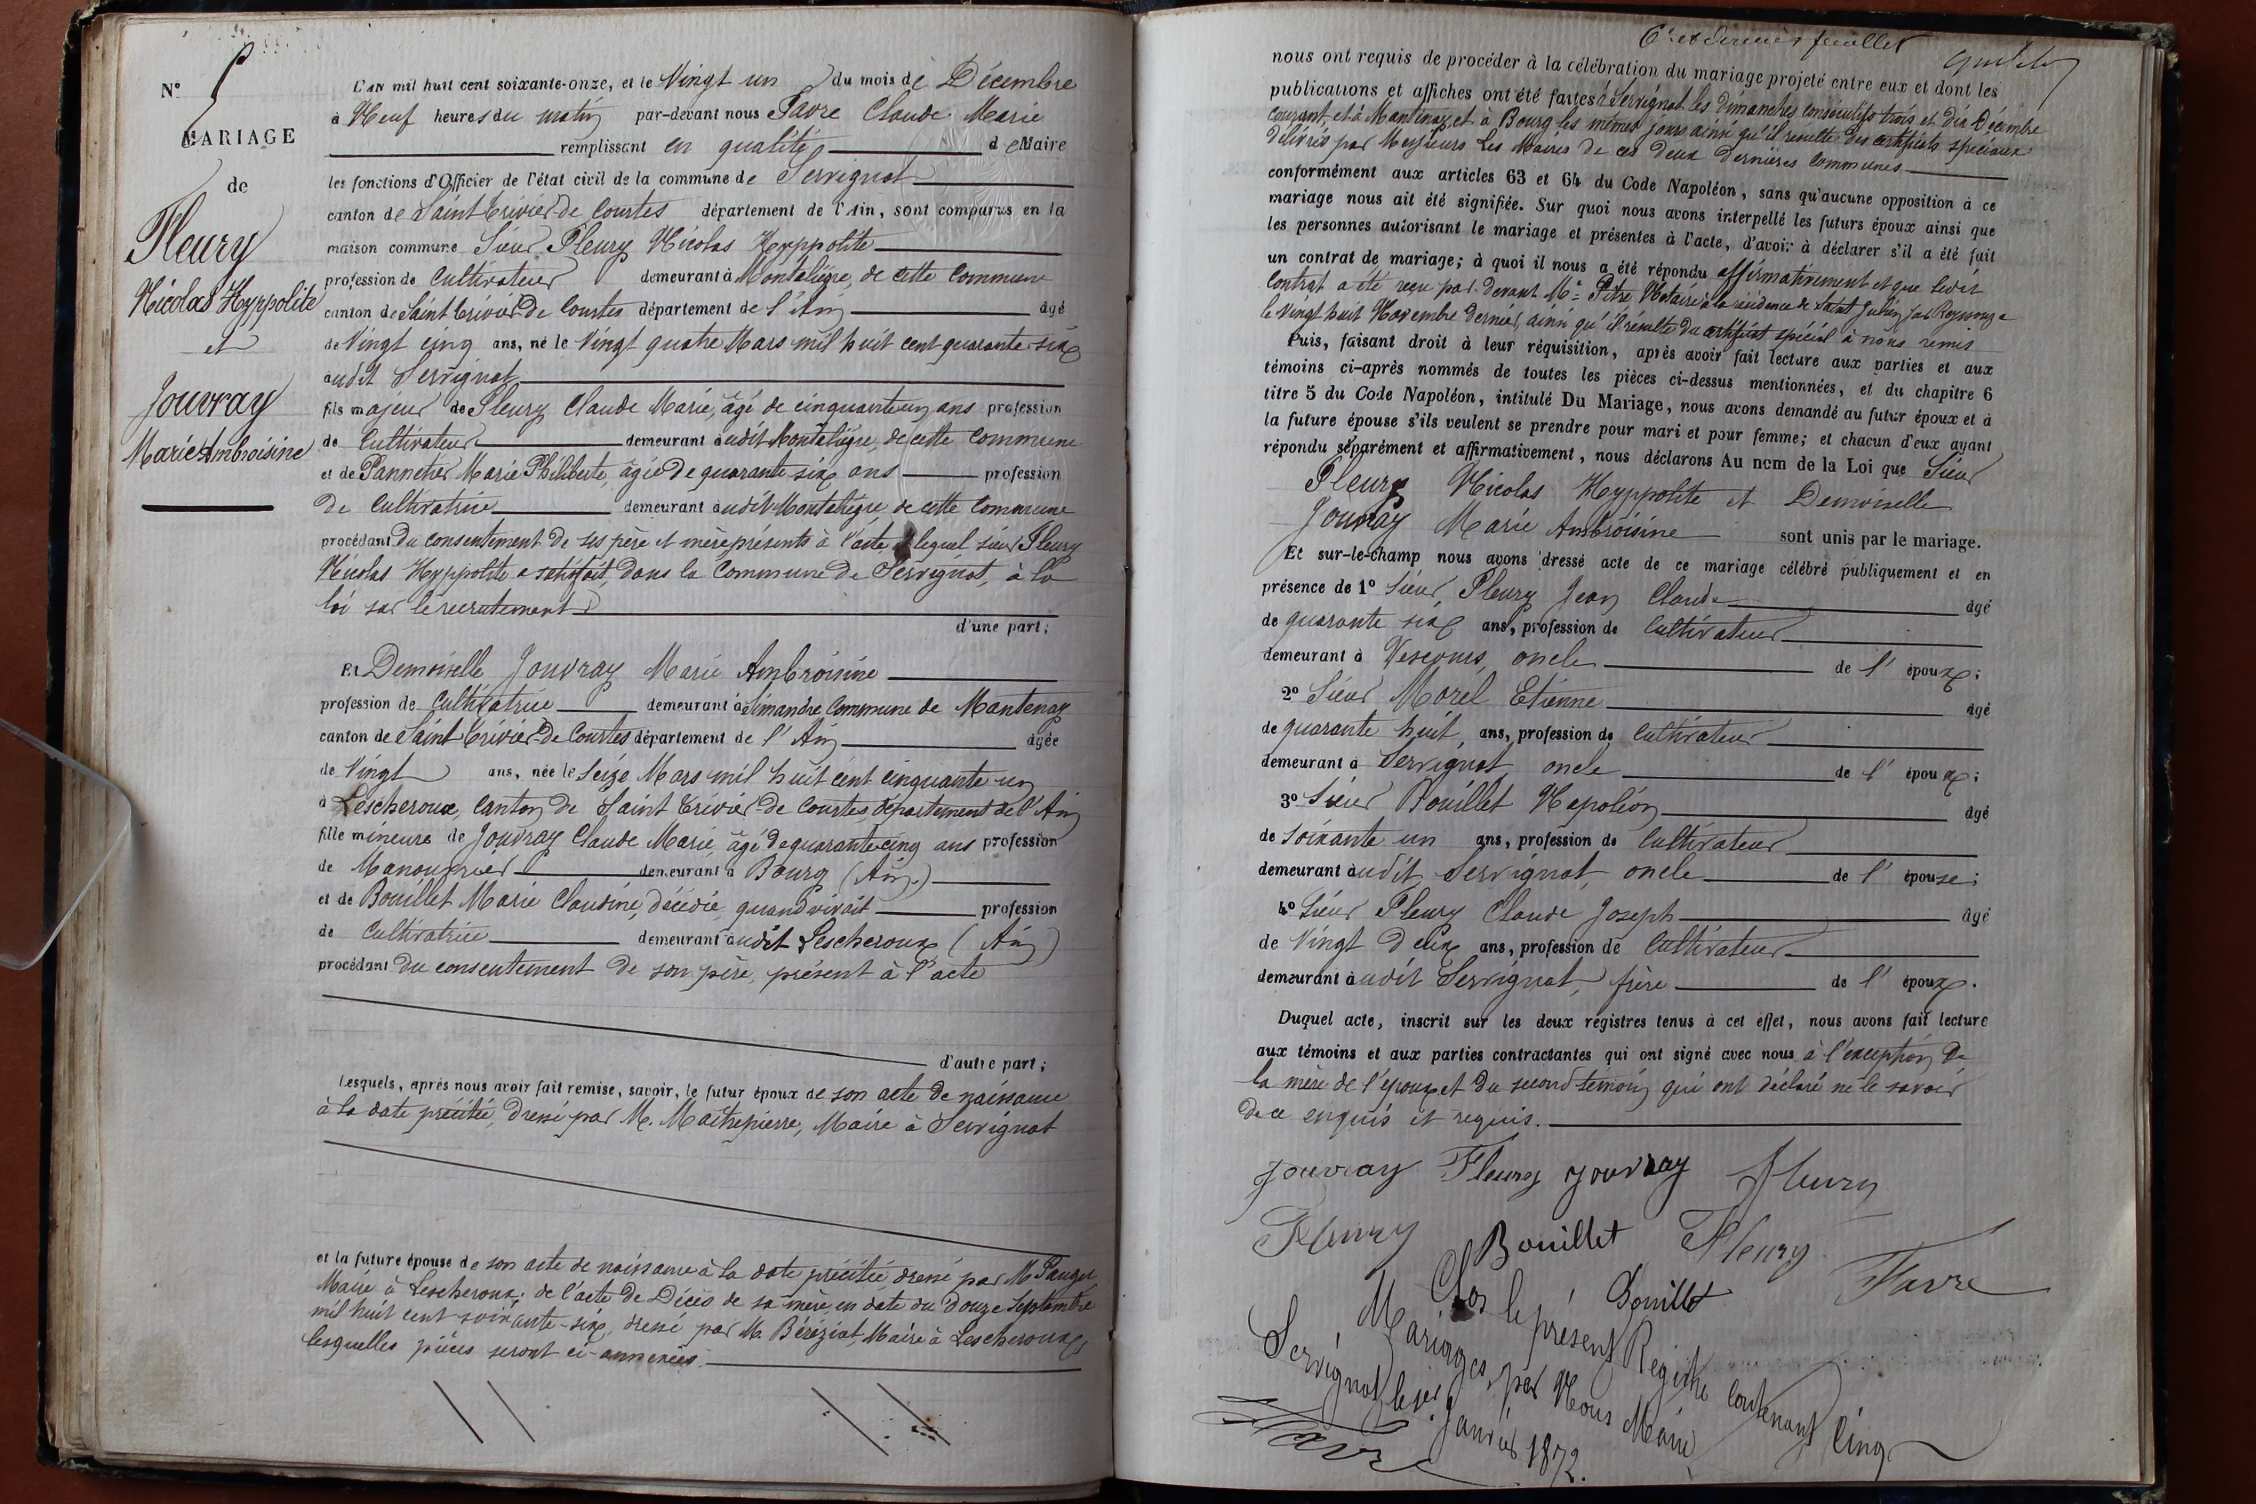 N° 5
MARIAGE
de
Fleury
Nicolas Hyppolite
et
Jouvray
Marie Ambroisine
L'AN mil huit cent soixante-onze, et le Vingt un du mois de Décembre
à Neuf heures du matin par-devant nous Favre Claude Marie
remplissant en qualité de Maire
les fonctions d'Officier de l'état civil de la commune de Servignat
canton de Saint Trivier de Courtes département de l'Ain, sont comparus en la
maison commune Sieur Fleury Nicolas Hyppolite
profession de Cultivateur demeurant à Montalègre, de cette Commune
canton de Saint Trivier de Courtes département de l'Ain âgé
de Vingt cinq ans, né le Vingt quatre Mars mil huit cent quarante-six
audit Servignat
fils majeur de Fleury Claude Marie, âgé de cinquante un ans profession
de Cultivateur demeurant audit Montalègre, de cette Commune
et de Pannetier Marie Philiberte, âgée de quarante six ans profession
de Cultivatrice demeurant audit Montalègre de cette Commune
procédant du consentement de ses père et mère présents à l'acte lequel sieur Fleury
Nicolas Hyppolite a satisfait, dans la Commune de Servignat, à la
loi sur le recrutement
d'une part;
Et Demoiselle Jouvray Marie Ambroisine
profession de Cultivatrice demeurant à Simandre Commune de Mantenay
canton de Saint Trivier de Courtes département de l'Ain âgée
de Vingt ans, née le Seize Mars mil huit cent cinquante un
à Lescheroux, Canton de Saint Trivier de Courtes, département de l'Ain
fille mineure de Jouvray Claude Marie, âgé de quarante cinq ans profession
de Manouvrier demeurant à Bourg (Ain)
et de Bouillet Marie Claudine, décédée, quand vivait profession
de Cultivatrice demeurant audit Lescheroux (Ain)
procédant du consentement de son père, présent à l'acte
d'autre part;
Lesquels, après nous avoir fait remise, savoir, le futur époux de son acte de naissance
à la date précitée, dressé par M. Maîtrepierre, Maire à Servignat
et la future épouse de son acte de naissance à la date précitée dressé par M. Pauget
Maire à Lescheroux; de l'acte de Décès de sa mère, en date du douze Septembre
mil huit cent soixante-six, dressé par M. Béréziat, Maire à Lescheroux,
lesquelles pièces seront ci-annexées.
6e et dernier feuillet
nous ont requis de procéder à la célébration du mariage projeté entre eux et dont les
publications et affiches ont été faites à Servignat les dimanches consécutifs trois et dix Décembre
courant, et à Mantenay et à Bourg les mêmes jours ainsi qu'il résulte des certificats spéciaux
délivrés par Messieurs Les Maires de ces deux dernières Communes
conformément aux articles 63 et 64 du Code Napoléon, sans qu'aucune opposition à ce
mariage nous ait été signifiée. Sur quoi nous avons interpellé les futurs époux ainsi que
les personnes autorisant le mariage et présentes à l'acte, d'avoir à déclarer s'il a été fait
un contrat de mariage; à quoi il nous a été répondu affirmativement et que ledit
Contrat a été reçu par devant Me Pitre Notaire à la résidence de Saint Julien sur Reyssouze
le Vingt huit Novembre dernier, ainsi qu'il résulte du certificat spécial à nous remis
Puis, faisant droit à leur réquisition, après avoir fait lecture aux parties et aux
témoins ci-après nommés de toutes les pièces ci-dessus mentionnées, et du chapitre 6
titre 5 du Code Napoléon, intitulé Du Mariage, nous avons demandé au futur époux et à
la future épouse s'ils veulent se prendre pour mari et pour femme; et chacun d'eux ayant
répondu séparément et affirmativement, nous déclarons Au nom de la Loi que Sieur
Fleury Nicolas Hyppolite et Demoiselle
Jouvray Marie Ambroisine sont unis par le mariage.
Et sur-le-champ nous avons dressé acte de ce mariage célébré publiquement et en
présence de 1° Sieur Fleury Jean Claude âgé
de quarante six ans, profession de Cultivateur
demeurant à Vescours, oncle de l'époux;
2° Sieur Morel Etienne âgé
de quarante huit ans, profession de Cultivateur
demeurant à Servignat, oncle de l'époux;
3° Sieur Bouillet Napoléon âgé
de soixante un ans, profession de Cultivateur
demeurant audit Servignat, oncle de l'épouse;
4° Sieur Fleury Claude Joseph âgé
de Vingt deux ans, profession de Cultivateur
demeurant audit Servignat, frère de l'époux.
Duquel acte, inscrit sur les deux registres tenus à cet effet, nous avons fait lecture
aux témoins et aux parties contractantes qui ont signé avec nous à l'exception de
la mère de l'époux et du second témoin qui ont déclaré ne le savoir
de ce enquis et requis.
Jouvray Fleury Jouvray Fleury
Fleury Bouillet Fleury
Bouillet Favre
Clos le présent Registre contenant Cinq
Mariages, par Nous Maire
Servignat le 1er Janvier 1872.
Favre